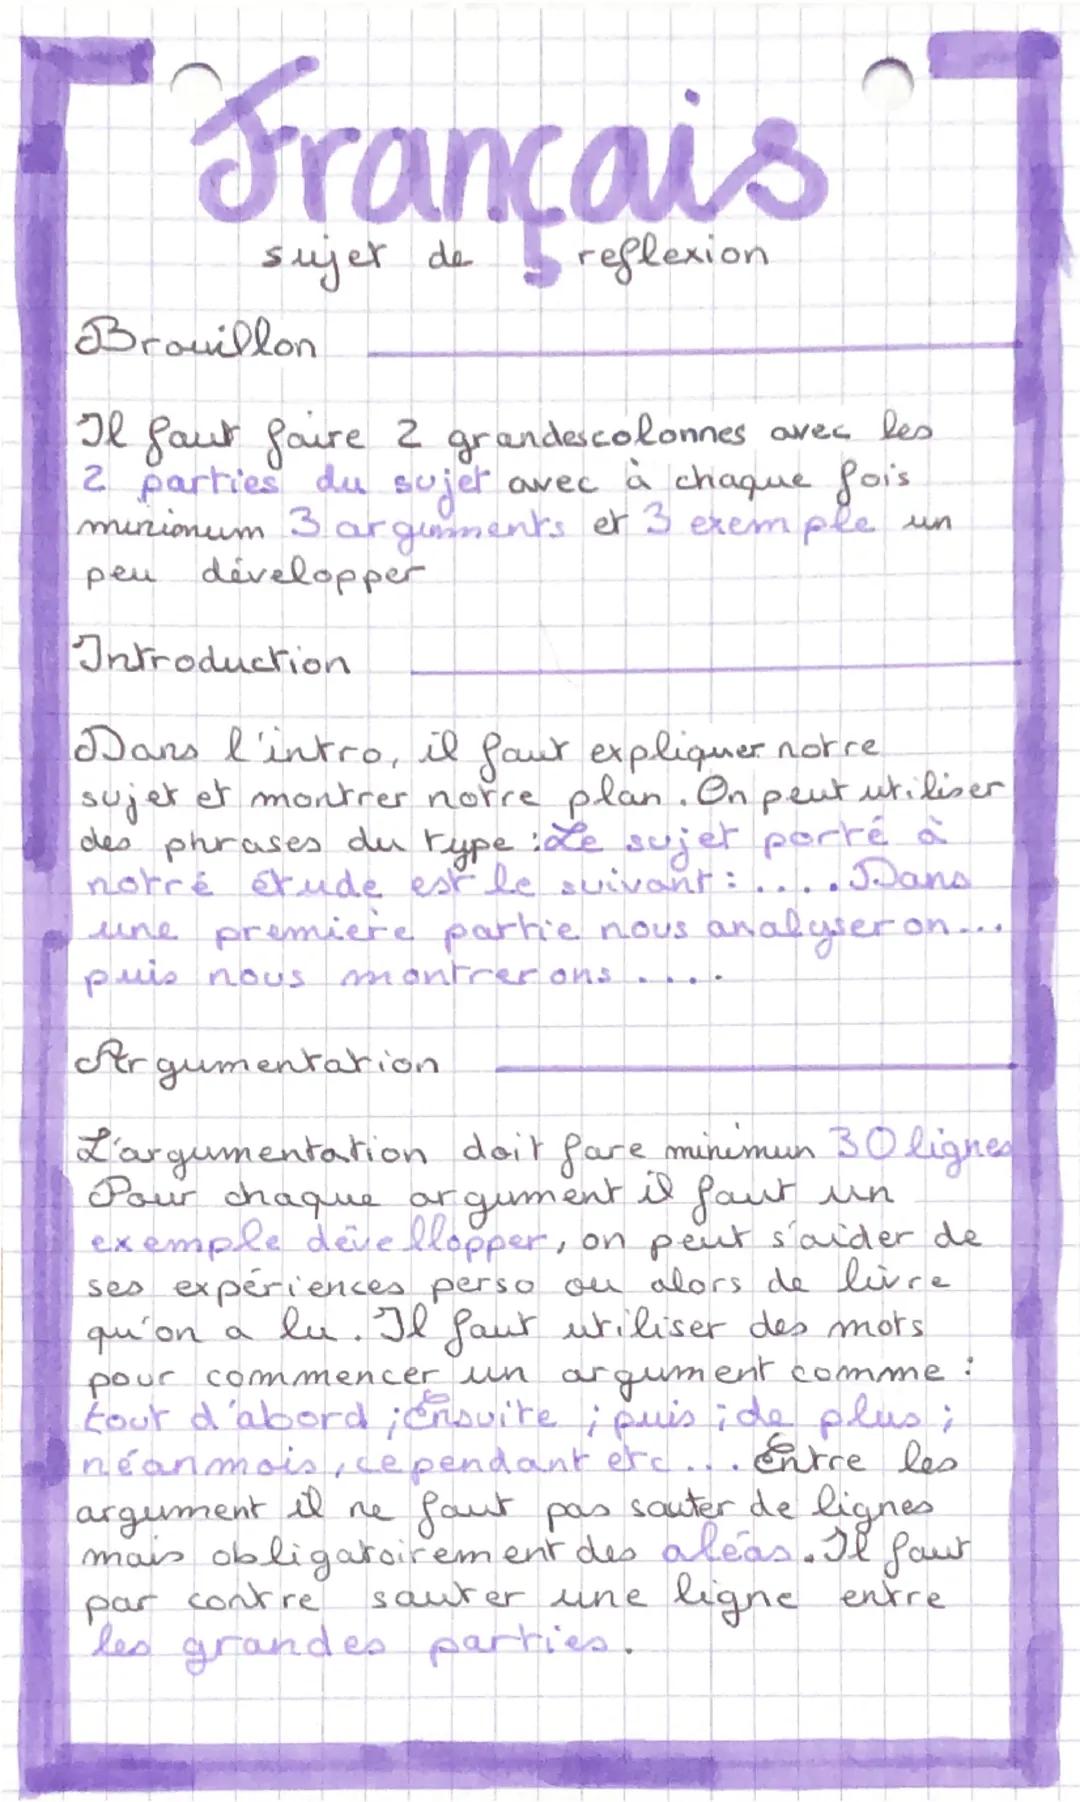 Français
sujet de reflexion
Brouillon
Il faut faire 2 grandescolonnes avec les
2 parties du sujet avec à chaque fois
minimum 3 arguments et 3 exemple un
peu développer
Introduction
Dans l'intro, il faut expliquer notre
sujet et montrer notre plan. On peut utiliser
des phrases du type : Le sujet porté à
notré étude est le suivant : .... Dans
une première partie nous analyseron...
puis nous montrerons ....
Argumentation
L'argumentation doit fare minimun 30 lignes
Pour chaque argument il faut un
exemple dévellopper, on peut s'aider de
ses expériences perso ou alors de livre
qu'on a lu. Il faut utiliser des mots
pour commencer un argument comme :
tout d'abord ; Ensuite ; puis ; de plus ;
néanmois, cependant etc... Entre les
argument il ne faut pas sauter de lignes
mais obligatoirement des aléas. Il faut
par contre sauter une ligne entre
les grandes parties.